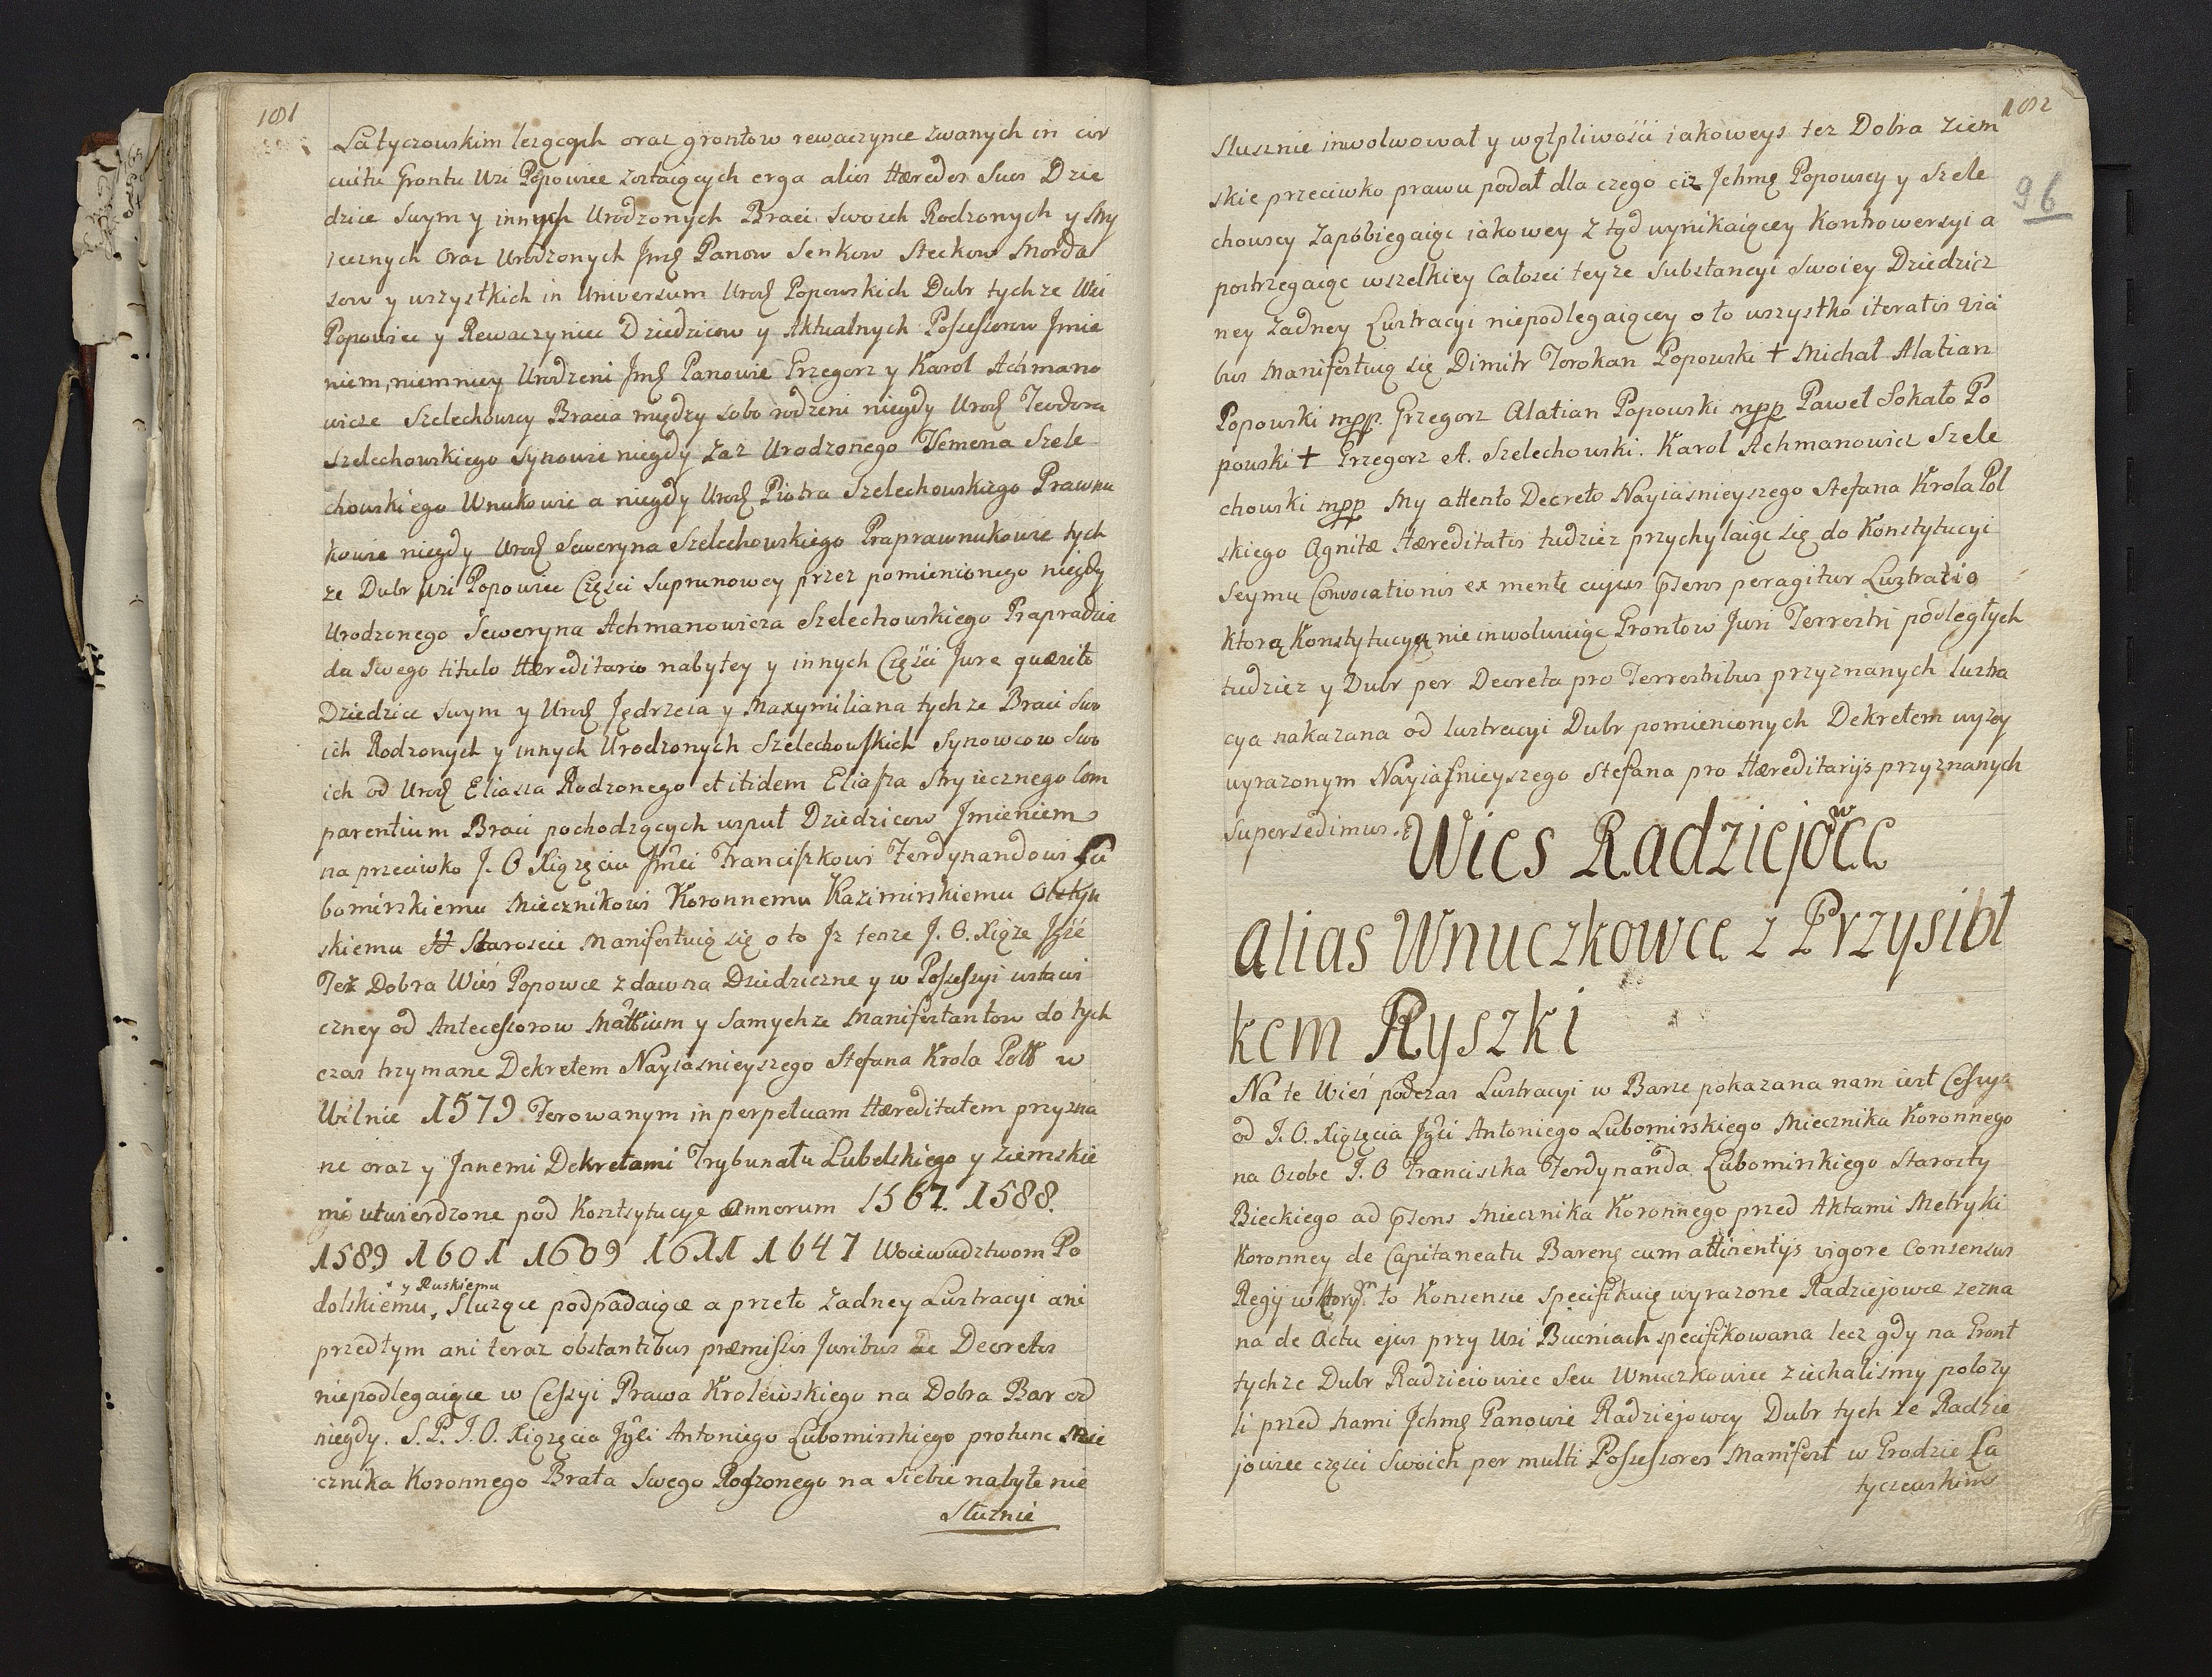 181
Latyczowskim lezących oraz grontow rewaczynce zwanych in cir
cuitu Grontu Wsi Popowiec zostaiących erga alios Hæredes Suos Dzie
dzice Swym y innych Urodzonych Braci Swoich Rodzonych y Stry
iecznych oraz Urodzonych Jmę Panow Senkow Steckow Morda
sow y wszystkich in Universum Urod Popowskich Dubr tychze Wsi
Popowiec y Rewaczyniec Dziedzicow y Aktualnych Possessorow Jmie
niem, niemniey Urodzeni Jmę Panowie Grzegorz y Karol Achmano
wicze Szelechowscy Bracia między sobo rodzeni niegdy Urod Teodora
Szelechowskiego Synowie niegdy zaz Urodzonego Semena Szele
chowskiego Wnukowie a niegdy Urod Piotra Szelechowskiego Prawnu
kowie niegdy Urod Seweryna Szelechowskiego Praprawnukowie tych
ze Dubr Wsi Popowiec Części Suprunowey przez pomienionego niegdy
Urodzonego Seweryna Achmanowicza Szelechowskiego Prapradzia
da Swego titulo Hæreditario nabytey y innych Części Jure quæsito
Dziedzice Swym y Urod Jędrzeia y Maxymiliana tychze Braci Swo
ich Rodzonych y innych Urodzonych Szelechowskich Synowcow Swo
ich od Urod Eliasza Rodzonego et itidem Eliasza Stryiecznego Com
parentium Braci pochodzących wsput Dziedzicow Jmieniem
na przeciwko J. O Xiązęciu Jmci Franciszkowi Ferdynandowi Lu
bomirskiemu Miecznikowi Koronnemu Kazimirskiemu Olstyn
skiemu ett Staroscie Manifestuią się o to Jz tenze J. O. Xiąze
Tez Dobra Wieś Popowce z dawna Dziedziczne y w Possessyi ustawi
czney od Antecessorow y Samychze Manifestantow do tych
czas trzymane Dekretem Nayiasnieyszego Stefana Krola w
Wilnie 1579 Ferowanym in perpetuam Hæreditatem przyzna
ne oraz y Jnnemi Dekretami Trybunatu Lubelskiego y Ziemskie
mi utwierdzone pod Kontsytucye Annorum 1567. 1588.
1589 1601 1609 1611 1647 Woiewudztwom Po
dolskiemu y Ruskiemu Sluzące podpadaiące a przeto zadney Lustracyi ani
przedtym ani teraz obstantibus præmissis Juribus ac Decretis
niepodlegaiące w Cessyi Prawa Krolewskiego na Dobra Bar od
niegdy. S. P. J. O. Xiązęcia Antoniego Lubomirskiego protunc Mie
cznika Koronnego Brata Swego Rodzonego na Siebie nabyte nie
Słuznie
182
96
Slusznie inwolwowat y wątpliwości iakoweys tez Dobra Ziem
skie przeciwko prawu podat dla czego ciz Jchmę Popowscy y Szele
chowscy zapobiegaiąc iakowey z tąd wynikaiącey Kontrowersyi a
postrzegaiąc wszelkiey Całosci teyze Substancyi Swoiey Dziedzicz
ney zadney Lustracyi niepodlegaiącey o to wszystko iteratis via
bus Manifestuią się Dimitr Torokan Popowski + Michał Alatian
Popowski mpp. Grzegorz Alatian Popowski mpp Paweł Sokało Po
powski + Grzegorz A. Szelechowski. Karol Achmanowicz Szele
chowski mpp My attento Decreto Nayiasnieyszego Stefana Krola Pol
skiego Agnitæ Hæreditatis tudziez przychylaiąc się do Konstytucyi
Seymu Convocationis ex mente cujus pñsens peragitur Lustratio
Ktorą Konstytucyą nie inwolwiąc Grontow Juri Terrestri podległych
tudziez y Dubr per Decreta pro Terrestribus przyznanych lustra
cya nakazana od lustracyi Dubr pomienionych Dekretem wyzey
wyrazonym Nayiasnieyszego Stefana pro Hæreditarijs przyznanych
Supersedimus.
Wies Radziejowce
alias Wnuczkowce z Przysiół
kem Ryszki
Na te Wieś podczas Lustracyi w Barze pokazana nam iest Cessya
od J. O. Xiązęcia Antoniego Lubomirskiego Miecznika Koronnego
na Osobe J. O Franciszka Ferdynanda Lubomirskiego Starosty
Bieckiego ad pñsens Miecznika Koronnego przed Aktami Metryki
Koronney de Capitaneatu Bareñ cum attinentijs vigore Consensus
Regij w ktorym to Konsensie Specifikuię wyrazone Radziejowce zezna
na de Actu ejus przy Wsi Bucniach specifikowana lecz gdy na Gront
tychze Dubr Radzieiowiec Seu Wnuczkowiec ziechalismy polozy
li przed nami Jchmę Panowie Radziejowscy Dubr tych ze Radzie
jowiec części Swoich per multi Possessores Manifest w Grodzie La
tyczewskim